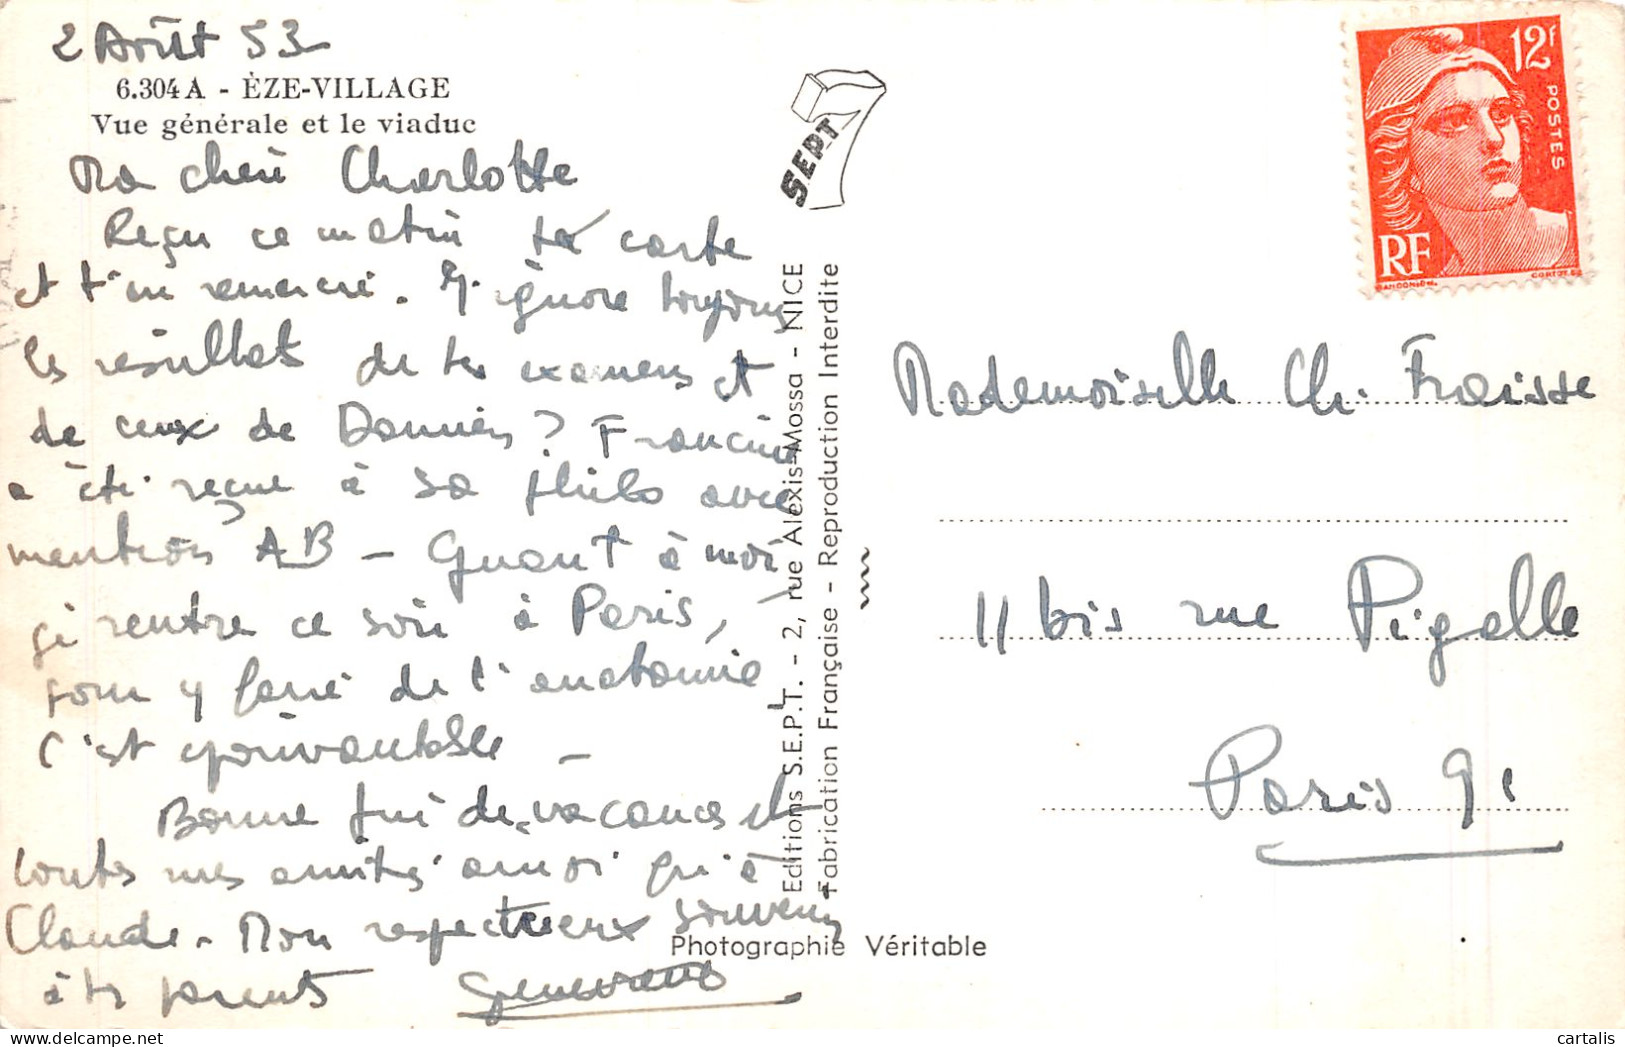 2 Août 53
6.304 A - ÈZE-VILLAGE
Vue générale et le viaduc
Ma chère Charlotte
Reçu ce matin ta carte
et t'en remercie. J'ignore toujours
les résultat de tes examens et
de ceux de Damien ? Francine
a été reçue à sa philo avec
mention AB – Quant à moi
je rentre ce soir à Paris,
pour y faire de l'anatomie
C'est épouvantable –
Bonne fin de vacances et
toutes mes amitiés ainsi qu'à
Claude. Mon respectueux souvenir
à tes parents Geneviève
SEPT 7
Editions S.E.P.T. - 2, rue Alexis Mossa - NICE
Fabrication Française - Reproduction Interdite
Photographie Véritable
12F
POSTES
RF
GANDON-DEL.
CORTOT SC
Mademoiselle Ch. Fraisse
11 bis rue Pigalle
Paris 9e
cartalis
www.delcampe.net